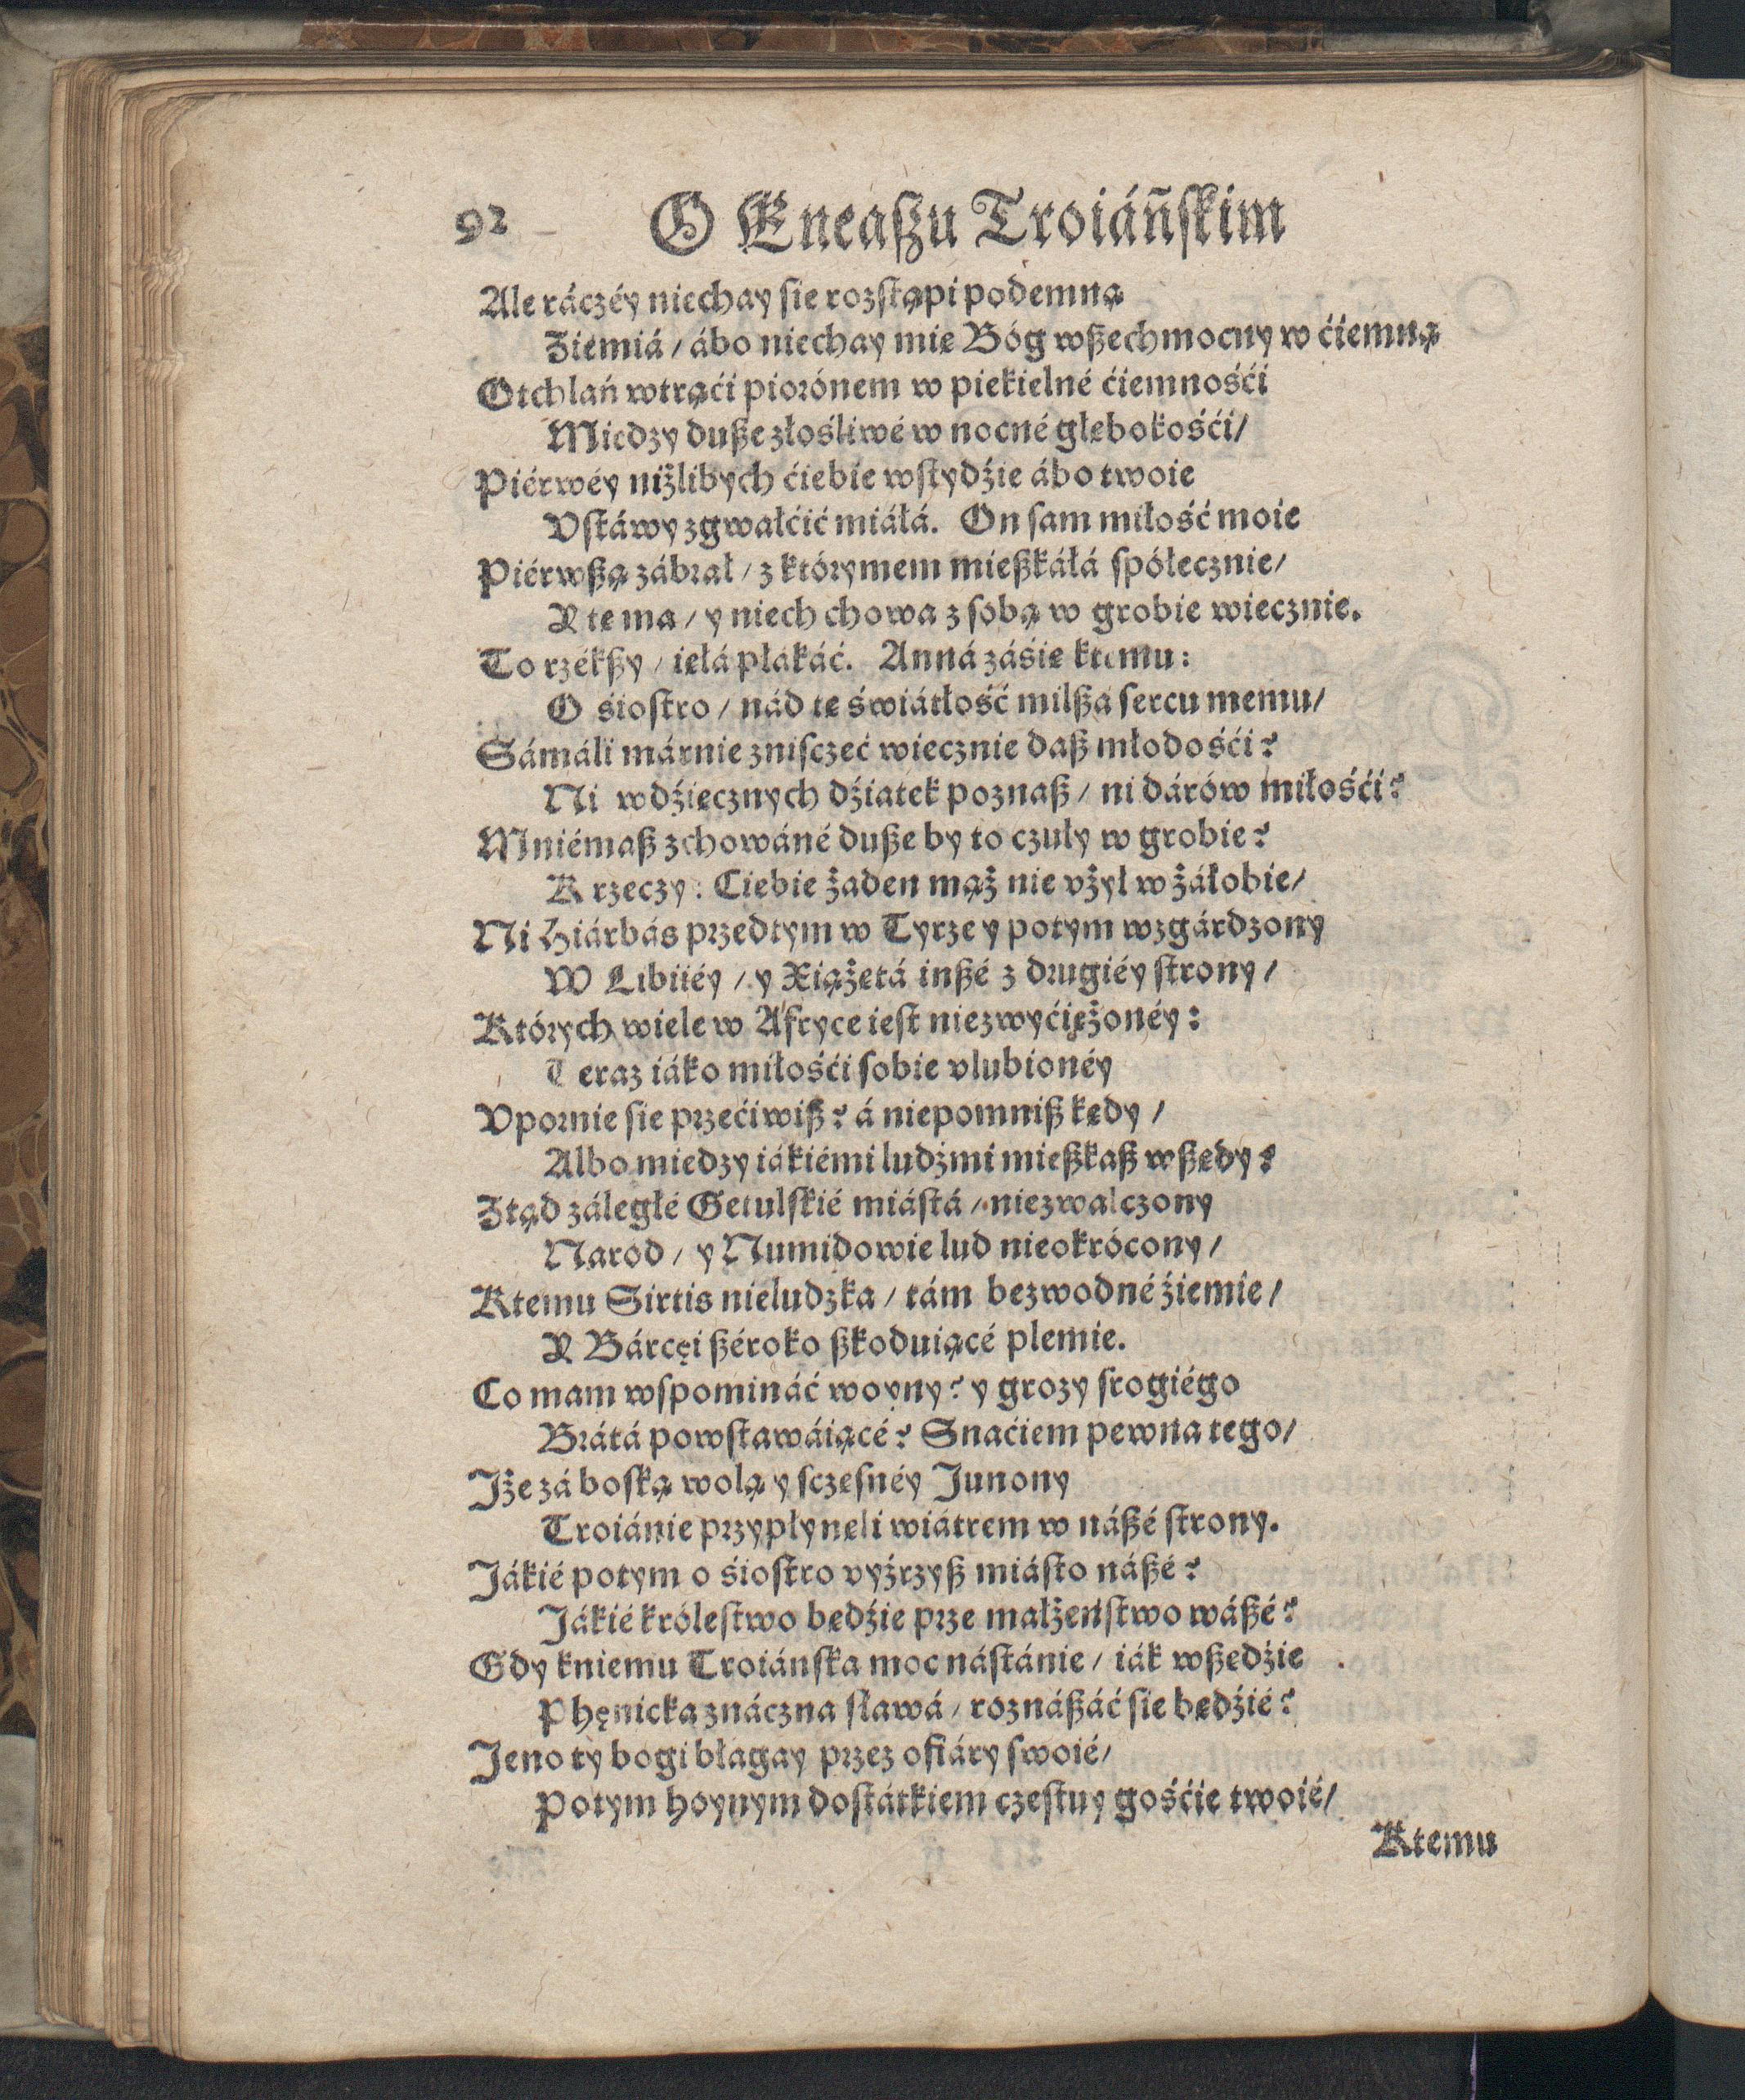 92 O Eneaſzu Troiáñſkim
Ale ráczéy niechay ſie rozſtąpi podemną
Ziemiá / ábo niechay mie Bóg wßechmocny w ćiemną
Otchlań wtrąći piorónem w piekielné ćiemnośći
Miedzy duße złośliwé w nocné głebokośći/
Piérwéy niżlibych ćiebie wſtydźie ábo twoie
Vſtáwy zgwałćić miáłá. On ſam miłość moie
Piérwßą zábrał / z którymem mießkáłá ſpółecznie/
Y te ma / y niech chowa z ſobą w grobie wiecznie.
To rzékßy / ięłá płákáć. Anná záśię ktemu:
O śioſtro / nád tę świátłość milßa ſercu memu/
Sámáli márnie zniſczeć wiecznie daß młodośći?
Ni wdźięcznych dźiatek poznaß / ni dárów miłośći?
Mniémaß zchowáné duße by to czuły w grobie?
K rzeczy: Ciebie żaden mąż nie vżył w żáłobie/
Ni Hiárbás przedtym w Tyrze y potym wzgárdzony
W Libiiéy / y Xiążetá inßé z drugiéy ſtrony/
Których wiele w Afryce ieſt niezwyćiężonéy:
Teraz iáko miłośći ſobie vlubionéy
Vpornie ſie przećiwiß? á niepomniß kędy /
Albo miedzy iákiémi ludźmi mießkaß wßędy?
Ztąd záległé Getulſkié miáſtá / niezwalczony
Naród / y Numidowie lud nieokrócony/
Ktemu Sirtis nieludzka / tám bezwodné źiemie/
Y Bárcęi ßéroko ßkoduiącé plemie.
Co mam wſpomináć woyny? y grozy ſrogiégo
Brátá powſtawáiącé? Snaćiem pewna tego/
Iże zá boſką wolą y ſczeſnéy Junony
Troiánie przypłyneli wiátrem w náßé ſtrony.
Jákié potym o śioſtro vyźrzyß miáſto náßé?
Jákié króleſtwo będźie prze małżeńſtwo wáßé?
Gdy kniemu Troiánſka moc náſtánie / iák wßędźie
Phęnicka znáczna ſławá / roznáßáć ſie będźié?
Jeno ty bogi błagay przez ofiáry ſwoié/
Potym hoynym doſtátkiem czeſtuy gośćie twoié/
Ktemu